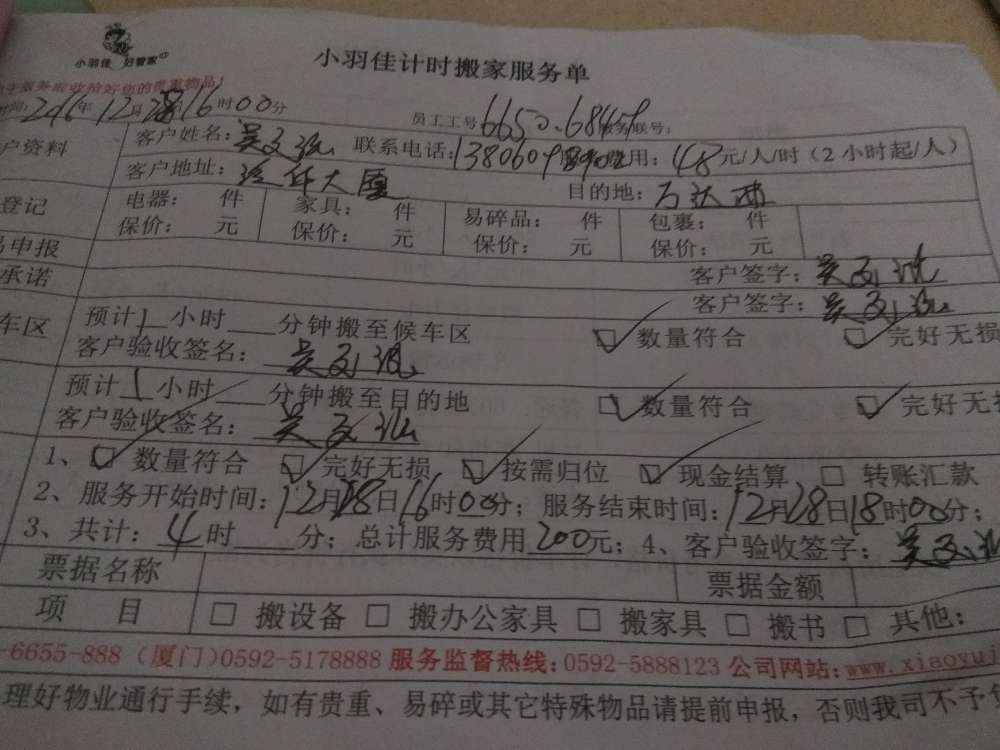 小羽佳 好管家
小羽佳计时搬家服务单
服务后收拾好您的贵重物品!
2016年12月28日16时00分
员工工号 6650.6845 服务联号:
户资料 客户姓名: 联系电话: 用: 48元/人/时(2小时起/人)
客户地址: 大厦 目的地: 万达
登记 电器: 件 家具: 件 易碎品: 件 包裹: 件
保价: 元 保价: 元 保价: 元 保价: 元
申报
承诺 客户签字: 吴
客户签字: 吴
车区 预计1小时 分钟搬至候车区 数量符合 完好无损
客户验收签名: 吴
预计1小时 分钟搬至目的地 数量符合 完好无
客户验收签名: 吴
1、 数量符合 完好无损 按需归位 现金结算 转账汇款
2、服务开始时间:12月28日16时00分; 服务结束时间:12月28日18时00分;
3、共计:4时 分; 总计服务费用200元; 4、客户验收签字: 吴
票据名称 票据金额
项 目 搬设备 搬办公家具 搬家具 搬书 其他:
-6655-888 (厦门)0592-5178888 服务监督热线:0592-5888123 公司网站:www.xiaoyuj
理好物业通行手续,如有贵重、易碎或其它特殊物品请提前申报,否则我司不予